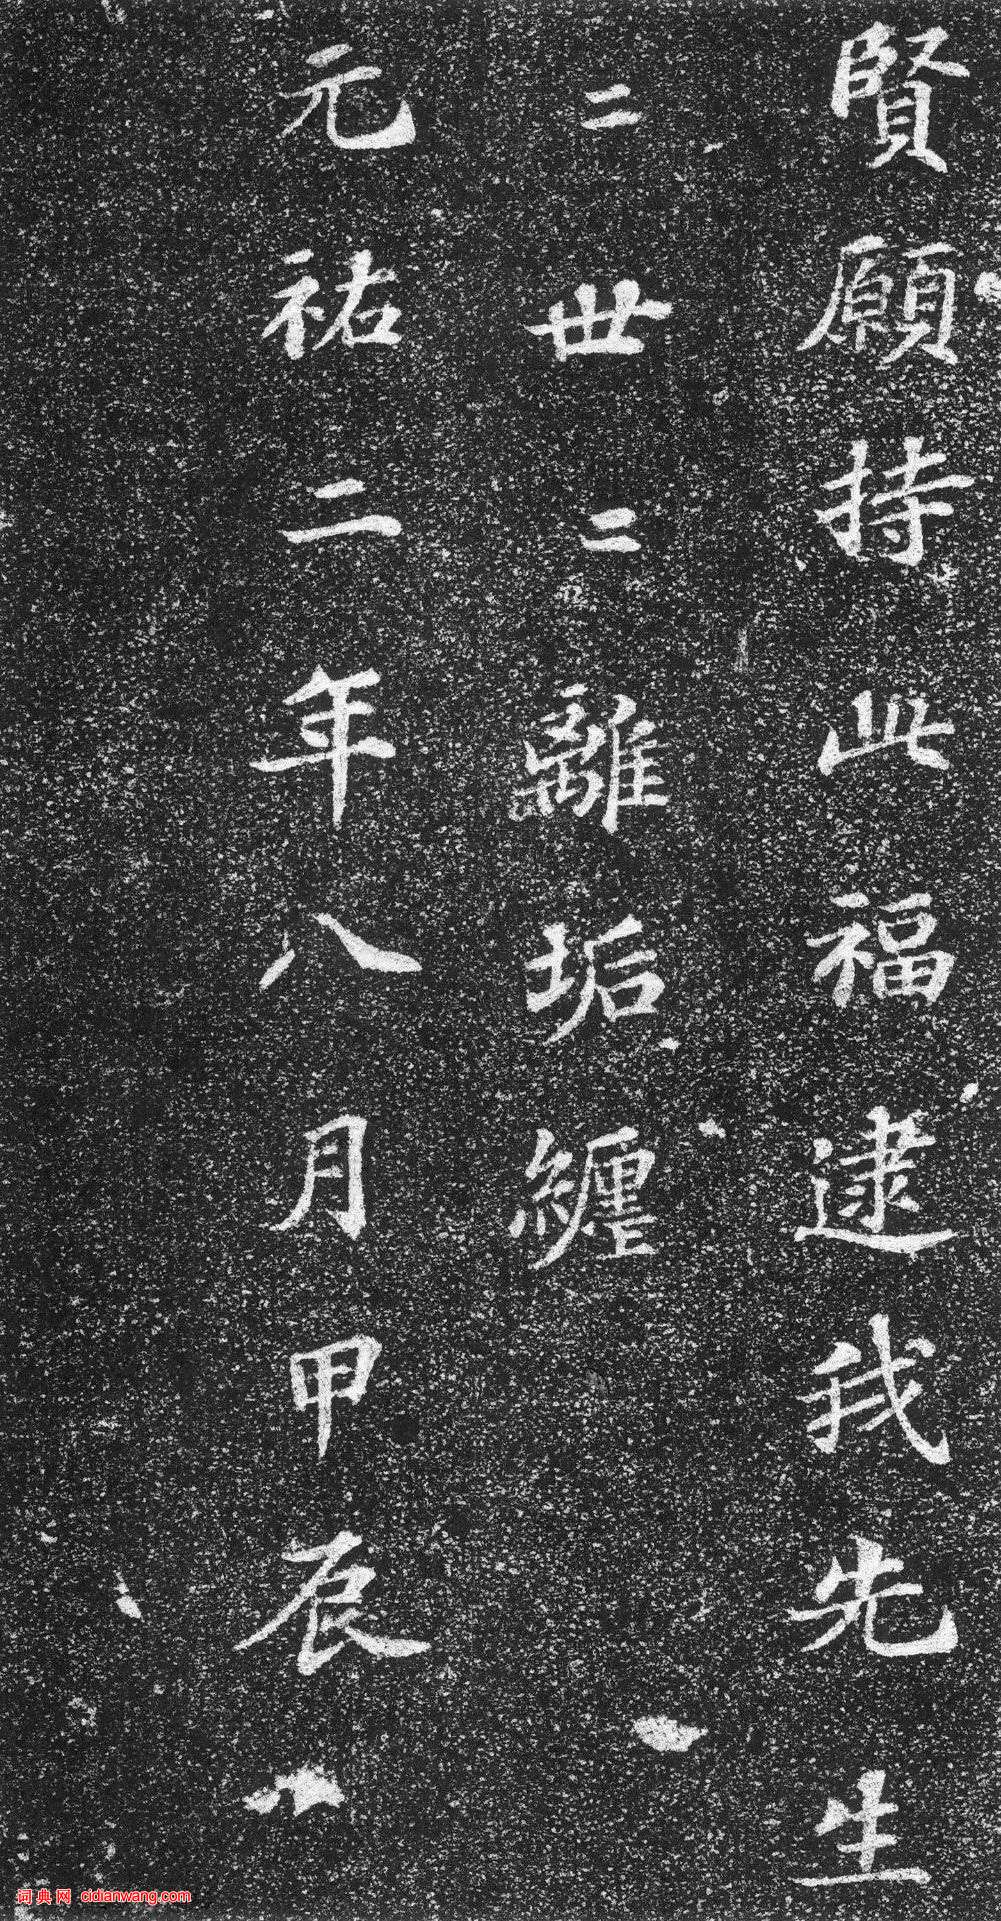 賢願持此福逮我先生
二世二離垢纏
元祐二年八月甲辰
词典网 cidianwang.com